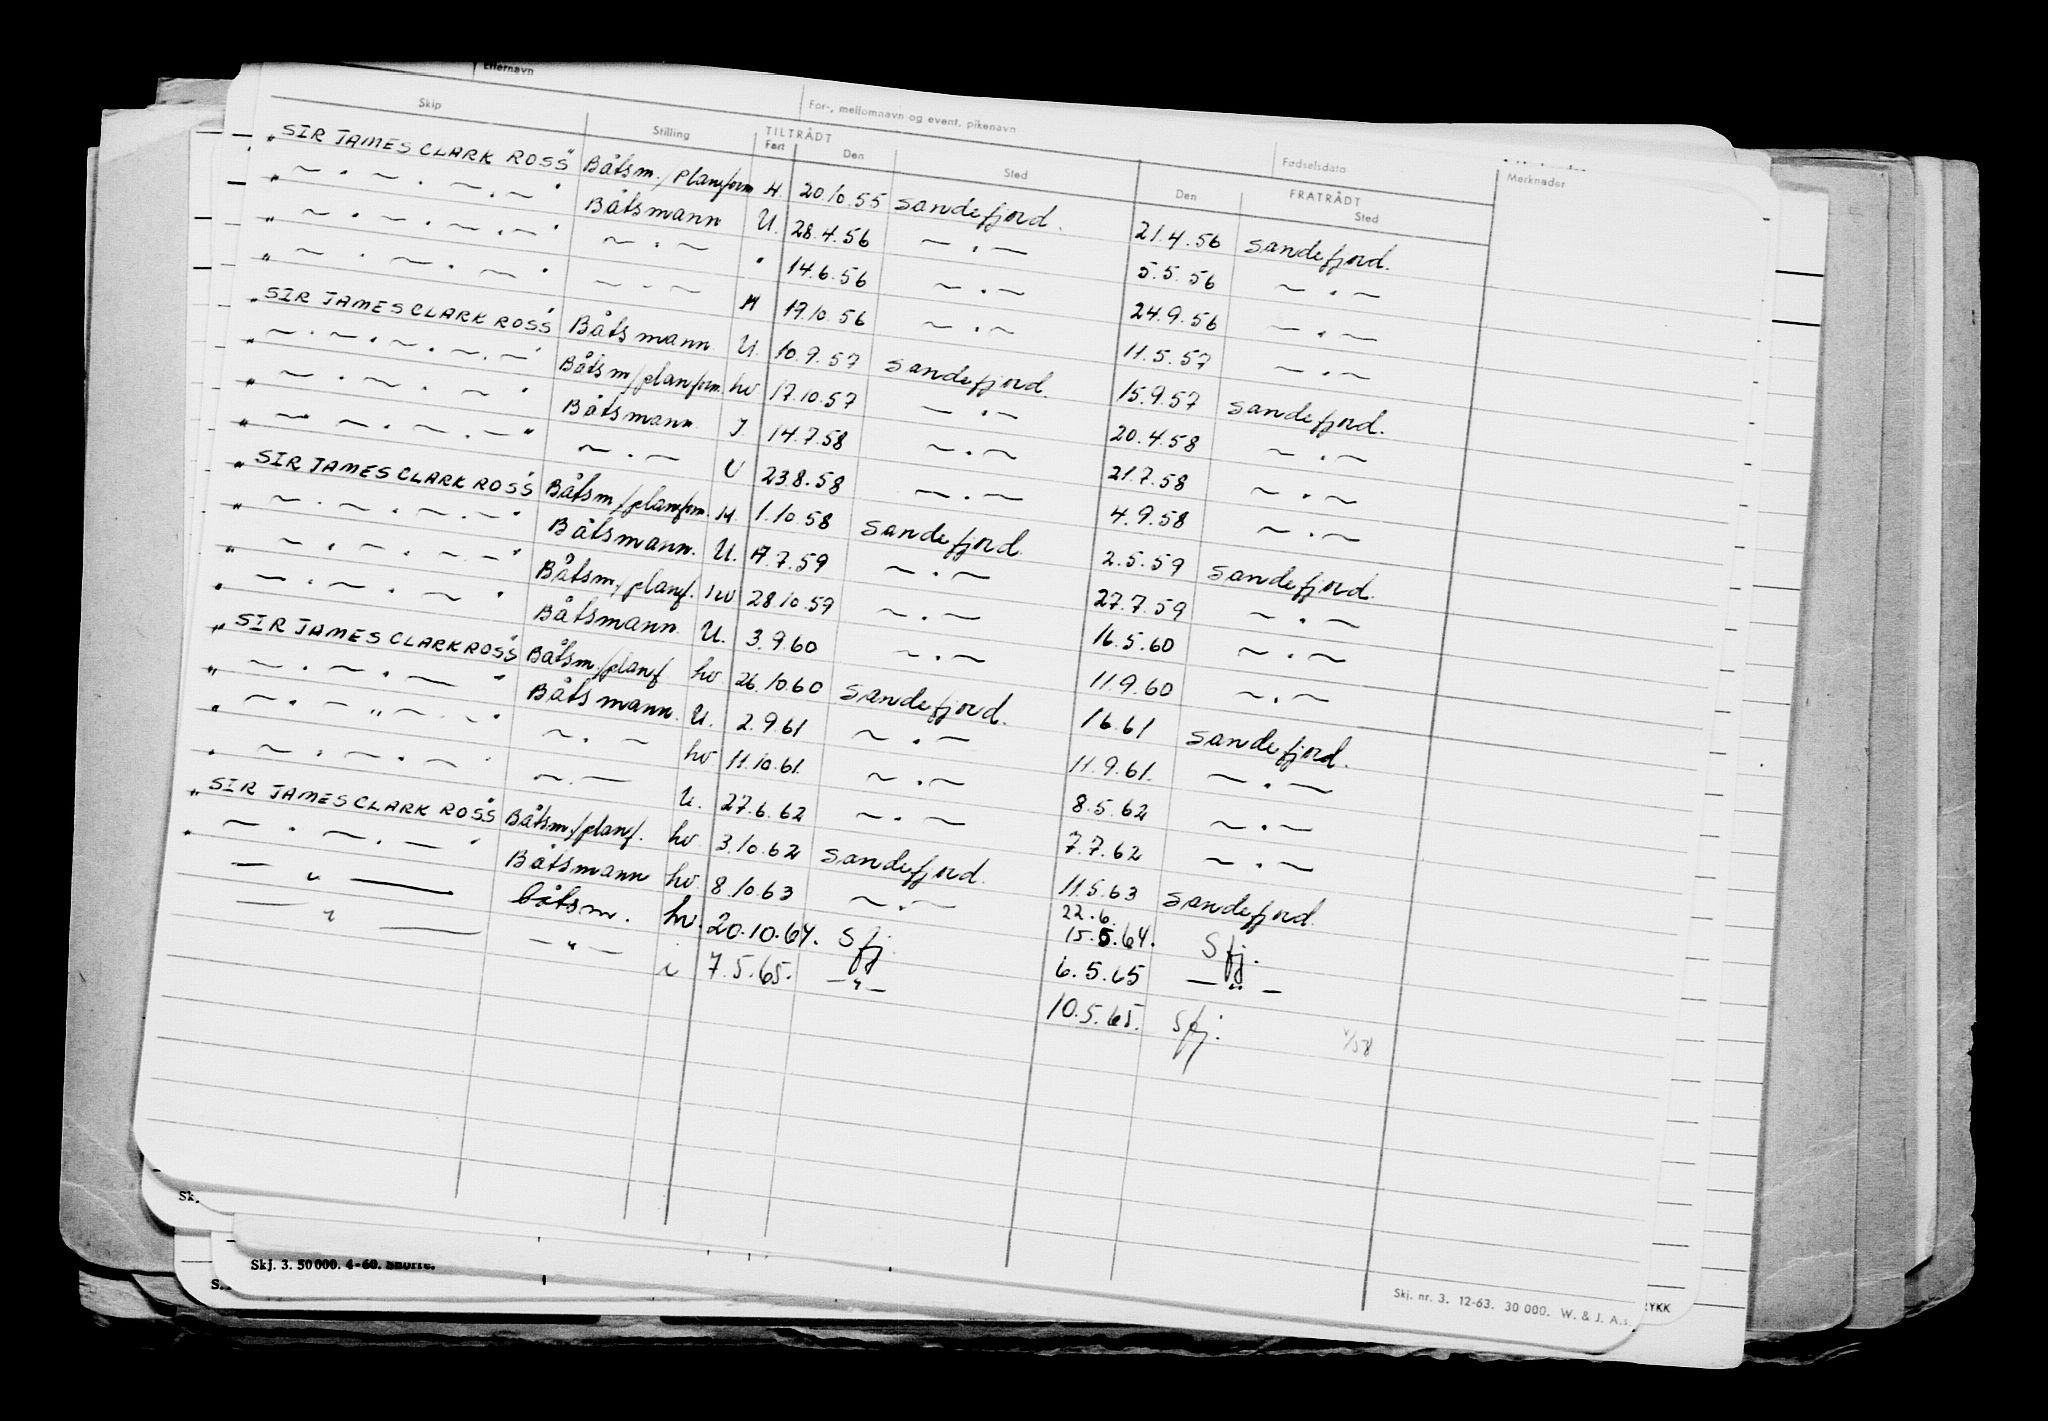 Etternavn For-, mellomnavn og event. pikenavn Fødselsdata
Skip Stilling TILTRÅDT FRATRÅDT Merknader
Fart Den Sted Den Sted
"SIR JAMES CLARK ROSS" Båtsm./planform H. 20.10.55 Sandefjord. 21.4.56 Sandefjord.
" ~ . ~ . ~ . ~ " Båtsmann U. 28.4.56 ~ . ~ 5.5.56 ~ . ~
" ~ . ~ . ~ . ~ " ~ . ~ " 14.6.56 ~ . ~ 24.9.56 ~ . ~
" ~ . ~ . ~ . ~ " ~ . ~ . ~ H 17.10.56 ~ . ~ 11.5.57 ~ . ~
"SIR JAMES CLARK ROSS" Båtsmann U. 10.9.57 Sandefjord. 15.9.57 Sandefjord.
" ~ . ~ . ~ . ~ . ~ " Båtsm/planform. hv 17.10.57 ~ . ~ 20.4.58 ~ . ~
" ~ . ~ . ~ . ~ " Båtsmann J. 14.7.58 ~ . ~ 21.7.58 ~ . ~
" ~ " ~ . ~ . ~ " ~ . ~ U 23.8.58 ~ . ~ 4.9.58 ~ . ~
"SIR JAMES CLARK ROSS" Båtsm/planform. H. 1.10.58 Sandefjord. 2.5.59 Sandefjord.
" ~ . ~ . ~ . ~ " Båtsmann. U. 17.7.59 ~ . ~ 27.7.59 ~ . ~
" ~ . ~ . ~ . ~ " Båtsm./planf. hv 28.10.59 ~ . ~ 16.5.60 ~ . ~
" ~ . ~ . ~ " Båtsmann. U. 3.9.60 ~ . ~ 11.9.60 ~ . ~
"SIR JAMES CLARK ROSS" Båtsm./planf hv 26.10.60 Sandefjord. 1.6.61 Sandefjord.
" ~ . ~ . ~ " Båtsmann. U. 2.9.61 ~ . ~ 11.9.61. ~ . ~
" ~ . ~ " ~ . ~ " ~ . ~ hv 11.10.61. ~ . ~ 8.5.62 ~ . ~
" ~ . ~ . ~ " ~ . ~ U. 27.6.62 ~ . ~ 7.7.62 ~ . ~
"SIR JAMES CLARK ROSS" Båtsm./planf. hv. 3.10.62 Sandefjord. 11.5.63 Sandefjord.
" ~ . ~ . ~ " Båtsmann hv. 8.10.63 ~ . ~ 22.6 15.5.64. Sfj.
— " — båtsm. hv. 20.10.64. Sfj. 6.5.65 — " —
— " — — " — i 7.5.65. — " — 10.5.65. Sfj.
V/58
Skj. nr. 3. 12-63. 30 000. W. & J. A.s.
RYKK
Sk.
Skj. 3. 50 000. 4-60. Snorre.
S.